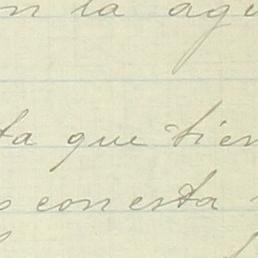 en la agu
ta que tien
s con esta